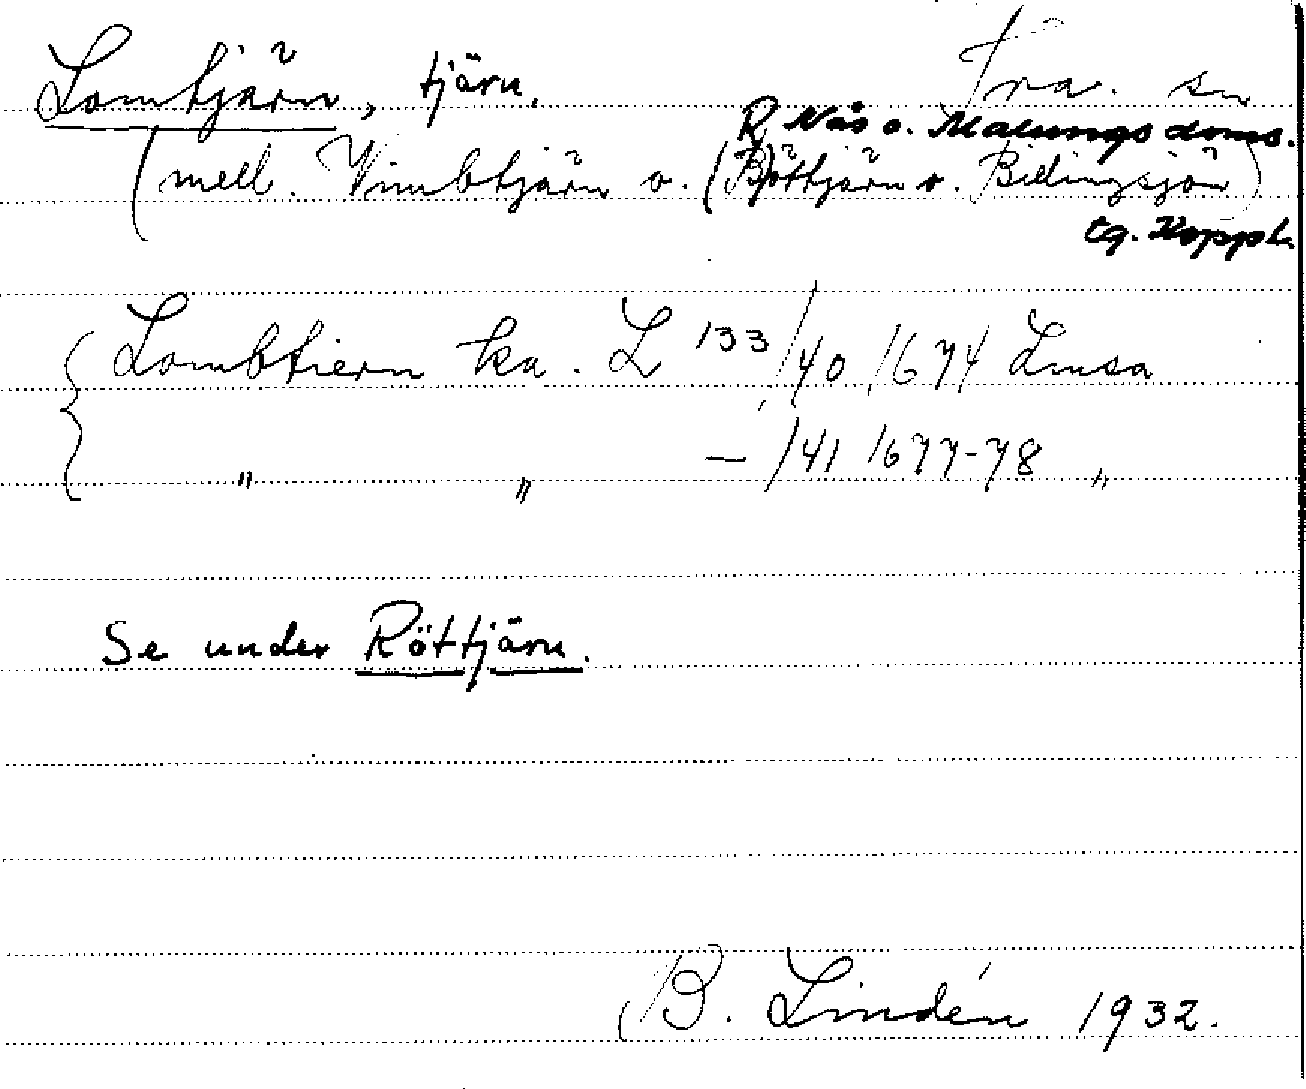 Lomtjärn, tjärn. sn
R Nås o. Malungs doms.
(mell. Vimbtjärn o. (B)öttjärn o. Billingsjön)
tg. Koppb.
Lombtiern ka. L 133/40 1674 Lmsa
" " — /41 1677-78 "
Se under Röttjärn.
B. Lindén 1932.